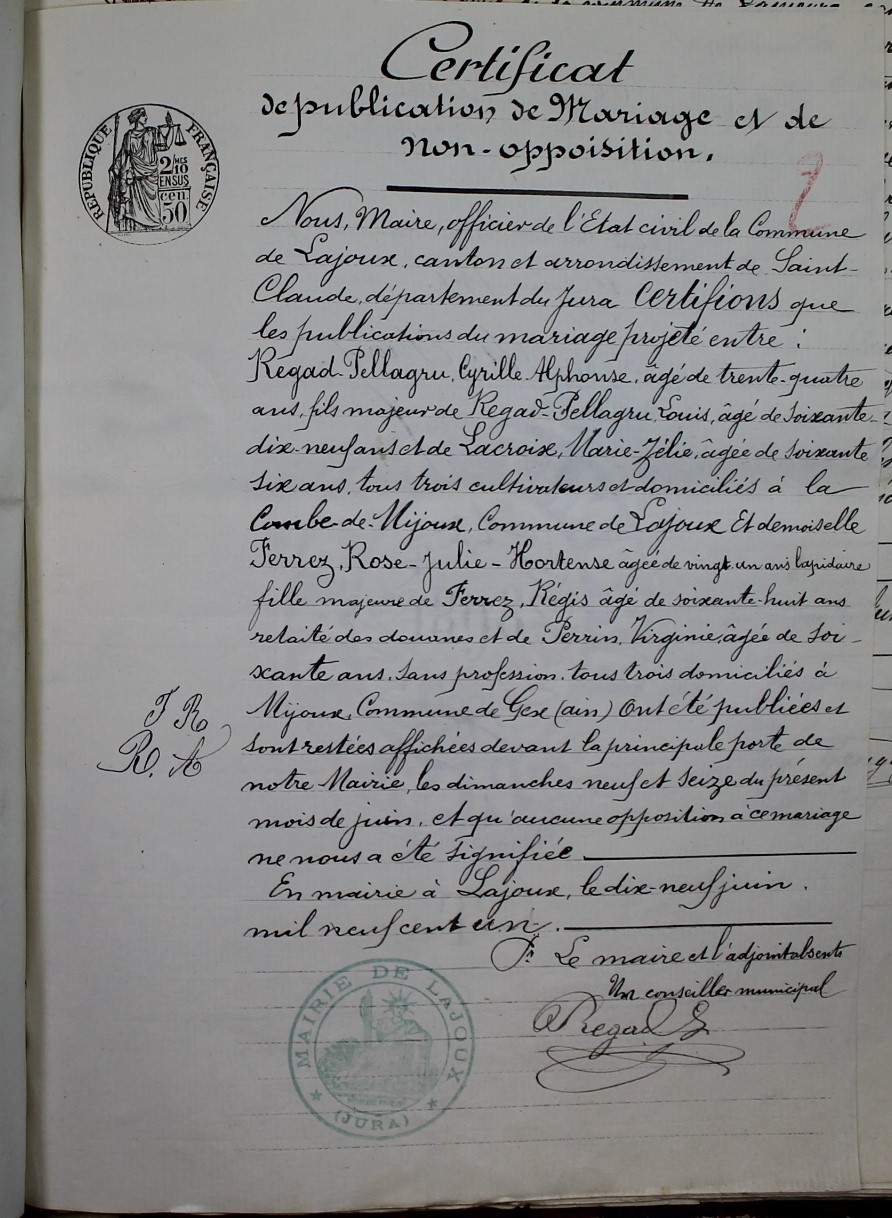 Certificat
de publication de Mariage et de
non-oppoisition.
RÉPUBLIQUE FRANÇAISE
2/10 MES
EN SUS
50 CEN
2
Nous, Maire, officier de l'Etat civil de la Commune
de Lajoux, canton et arrondissement de Saint-
Claude, département du Jura Certifions que
les publications du mariage projeté entre :
Regad-Pellagru, Cyrille-Alphonse, âgé de trente-quatre
ans, fils majeur de Regad-Pellagru, Louis, âgé de soixante-
dix-neuf ans et de Lacroix, Marie-Zélie, âgée de soixante
six ans, tous trois cultivateurs et domiciliés à la
Combe-de-Mijoux, Commune de Lajoux Et demoiselle
Ferrez, Rose-Julie-Hortense âgée de vingt un ans lapidaire
fille majeure de Ferrez, Régis âgé de soixante-huit ans
retaité des douanes et de Perrin, Virginie, âgée de soi-
xante ans, sans profession, tous trois domiciliés à
Mijoux, Commune de Gex (ain) Ont été publiées et
sont restées affichées devant la principale porte de
notre Mairie, les dimanches neuf et seize du présent
mois de juin, et qu'aucune opposition à ce mariage
ne nous a été signifiée
F R
R. A
En mairie à Lajoux, le dix-neuf juin
mil neuf cent un.
Pr Le maire et l'adjoint absents
Un conseiller municipal
Regad
MAIRIE DE LAJOUX
(JURA)